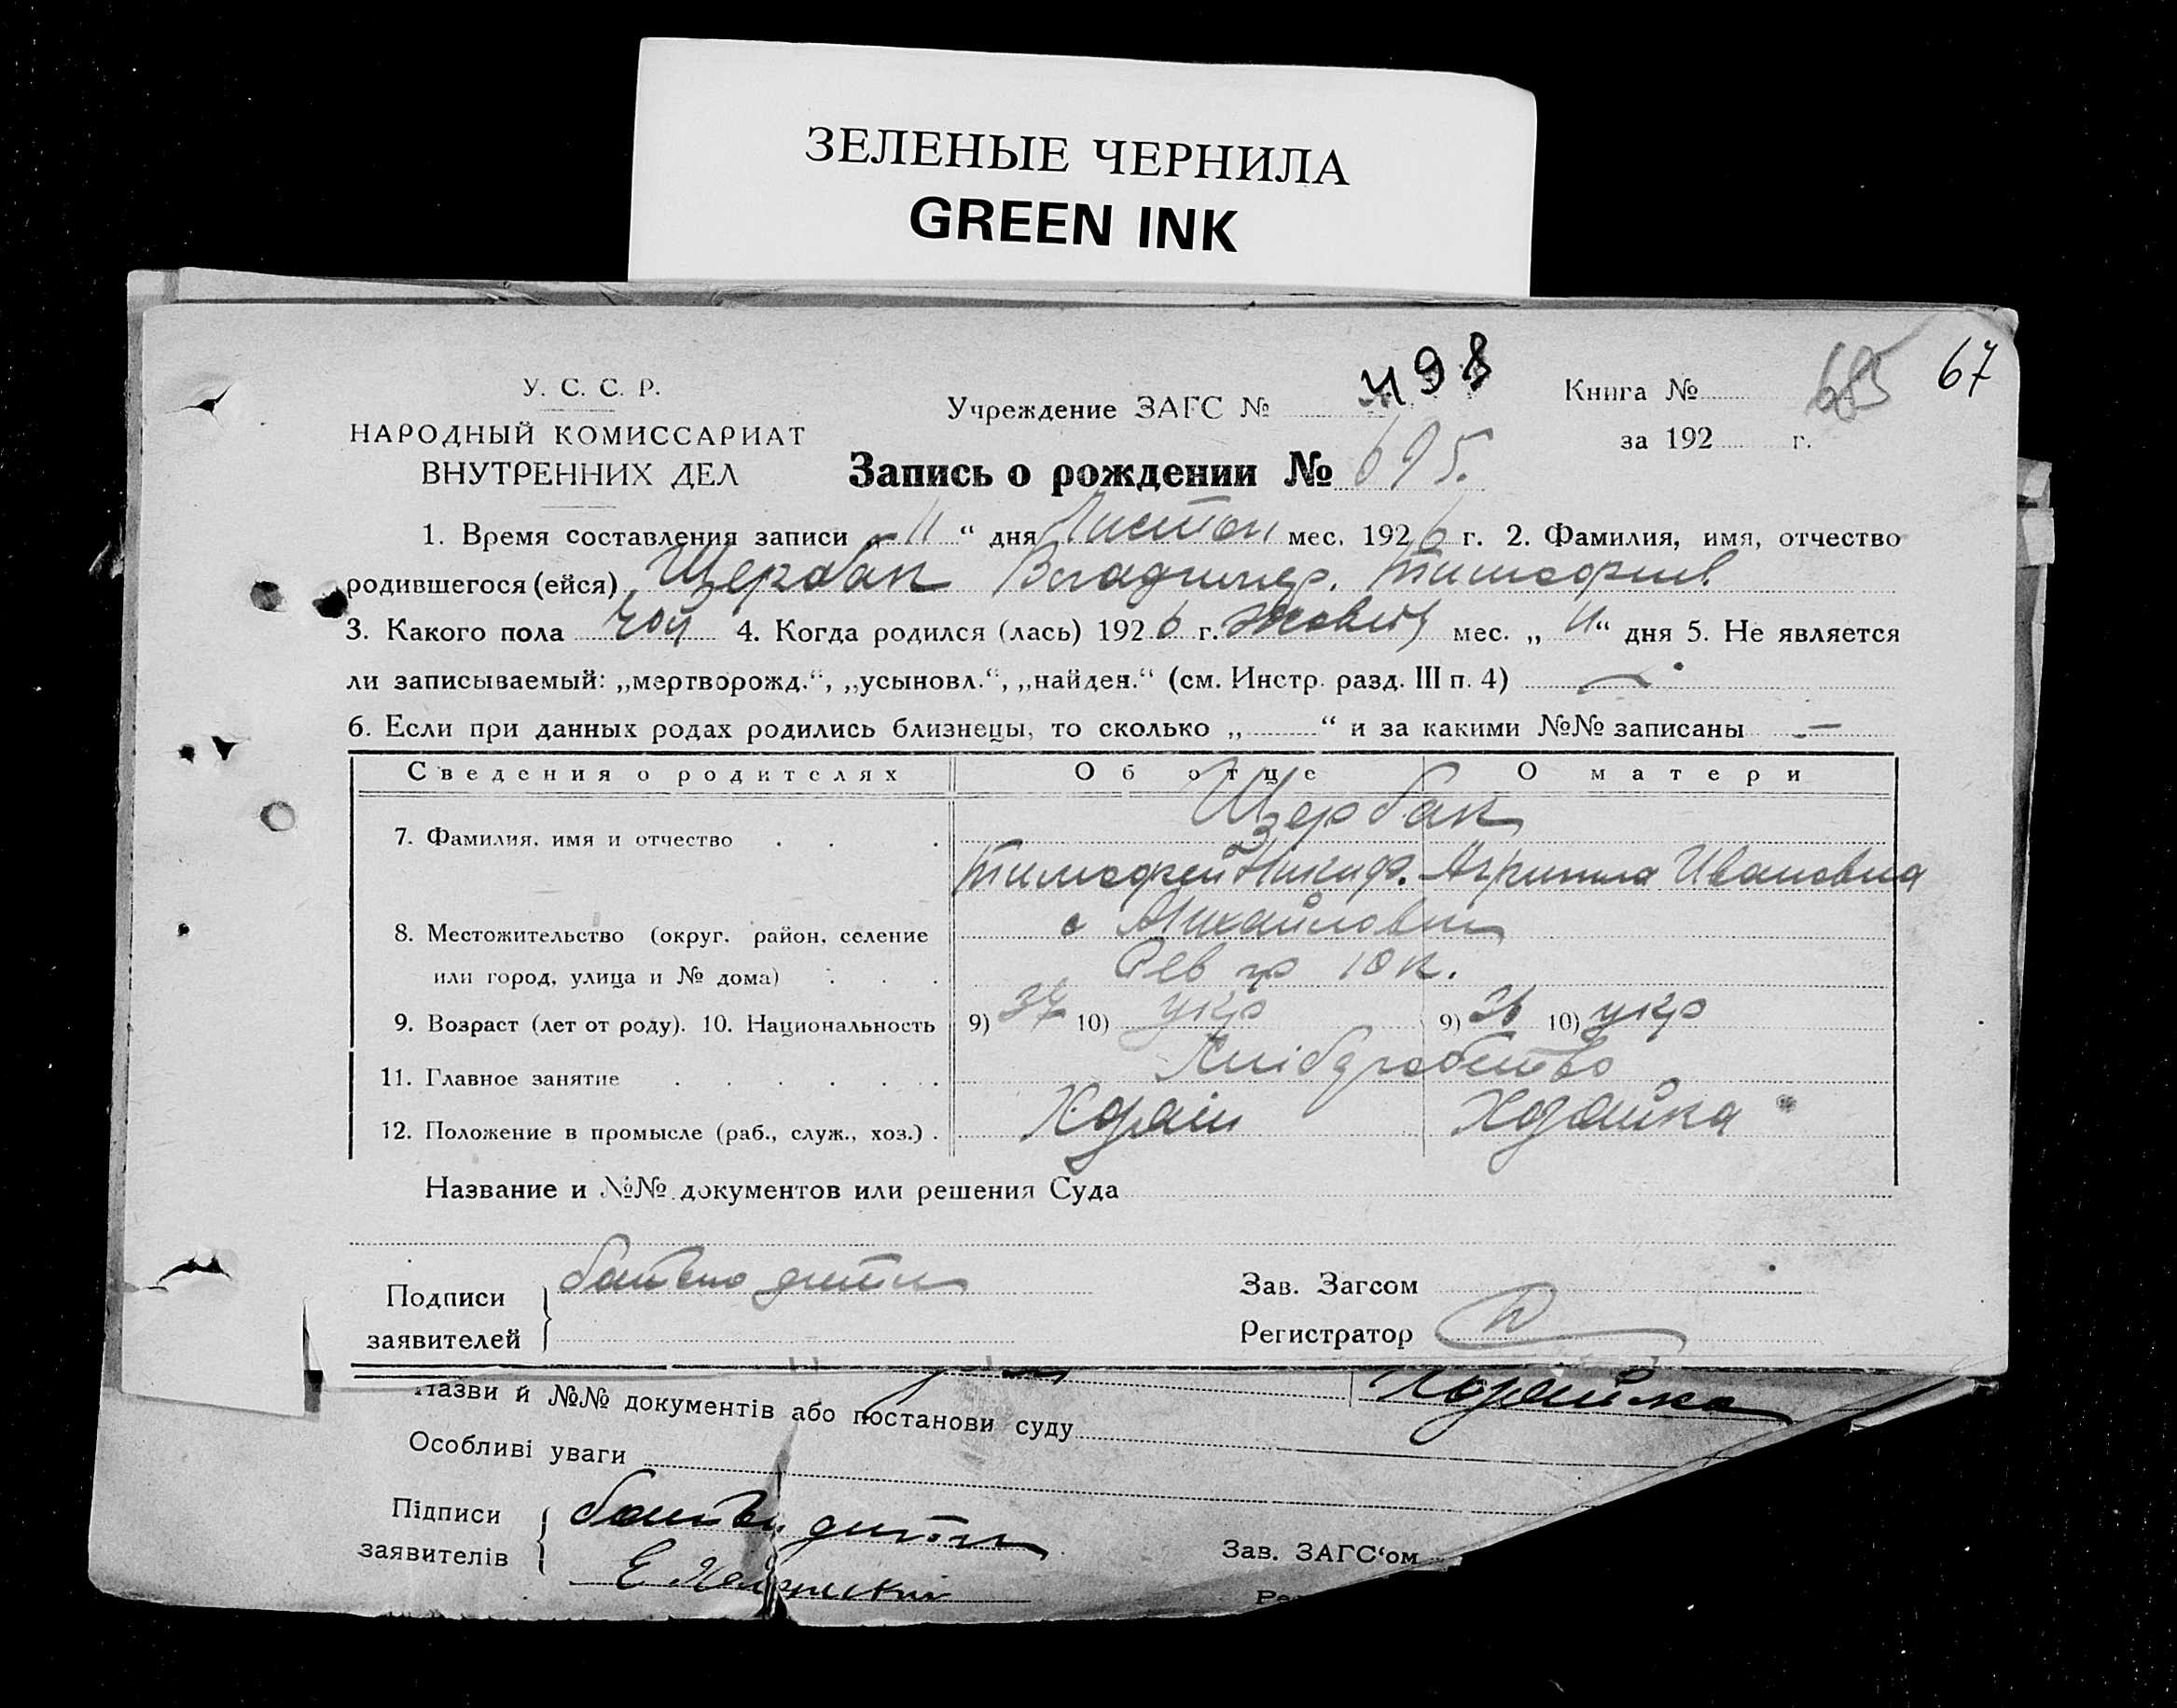 ЗЕЛЕНЫЕ ЧЕРНИЛА
GREEN INK
498
685
67
У. С. С. Р.
Учреждение ЗАГС №
Книга №
НАРОДНЫЙ КОМИССАРИАТ
за 192 г.
ВНУТРЕННИХ ДЕЛ
Запись о рождении № 695.
1. Время составления записи „ 11 “ дня Листоп мес. 1926 г. 2. Фамилия, имя, отчество
родившегося (ейся) Щербак Владимир. Тимофиив
3. Какого пола чол 4. Когда родился (лась) 1926 г. Жовтня мес. „ “ дня 5. Не является
ли записываемый: „мертворожд.“, „усыновл.“, „найден.“ (см. Инстр. разд. III п. 4) —
6. Если при данных родах родились близнецы, то сколько „ “ и за какими №№ записаны —
Сведения о родителях Об отце О матери
Щербак
7. Фамилия, имя и отчество . . .
Тимофей Никиф. Агрипина Ивановна
с Михайловки
8. Местожительство (округ, район, селение
или город, улица и № дома) . . .
9. Возраст (лет от роду). 10. Национальность 9) 37 10) укр 9) 26 10) укр
11. Главное занятие . . . . . . Хлібдробство
12. Положение в промысле (раб., служ., хоз.) . Хозяін Хозяйка
Название и №№ документов или решения Суда
Подписи
заявителей
батько дити
Зав. Загсом
Регистратор
Хозяйка
Назви й №№ документів або постанови суду
Особливі уваги
Підписи
заявителів
батько дити
Зав. ЗАГС‘ом